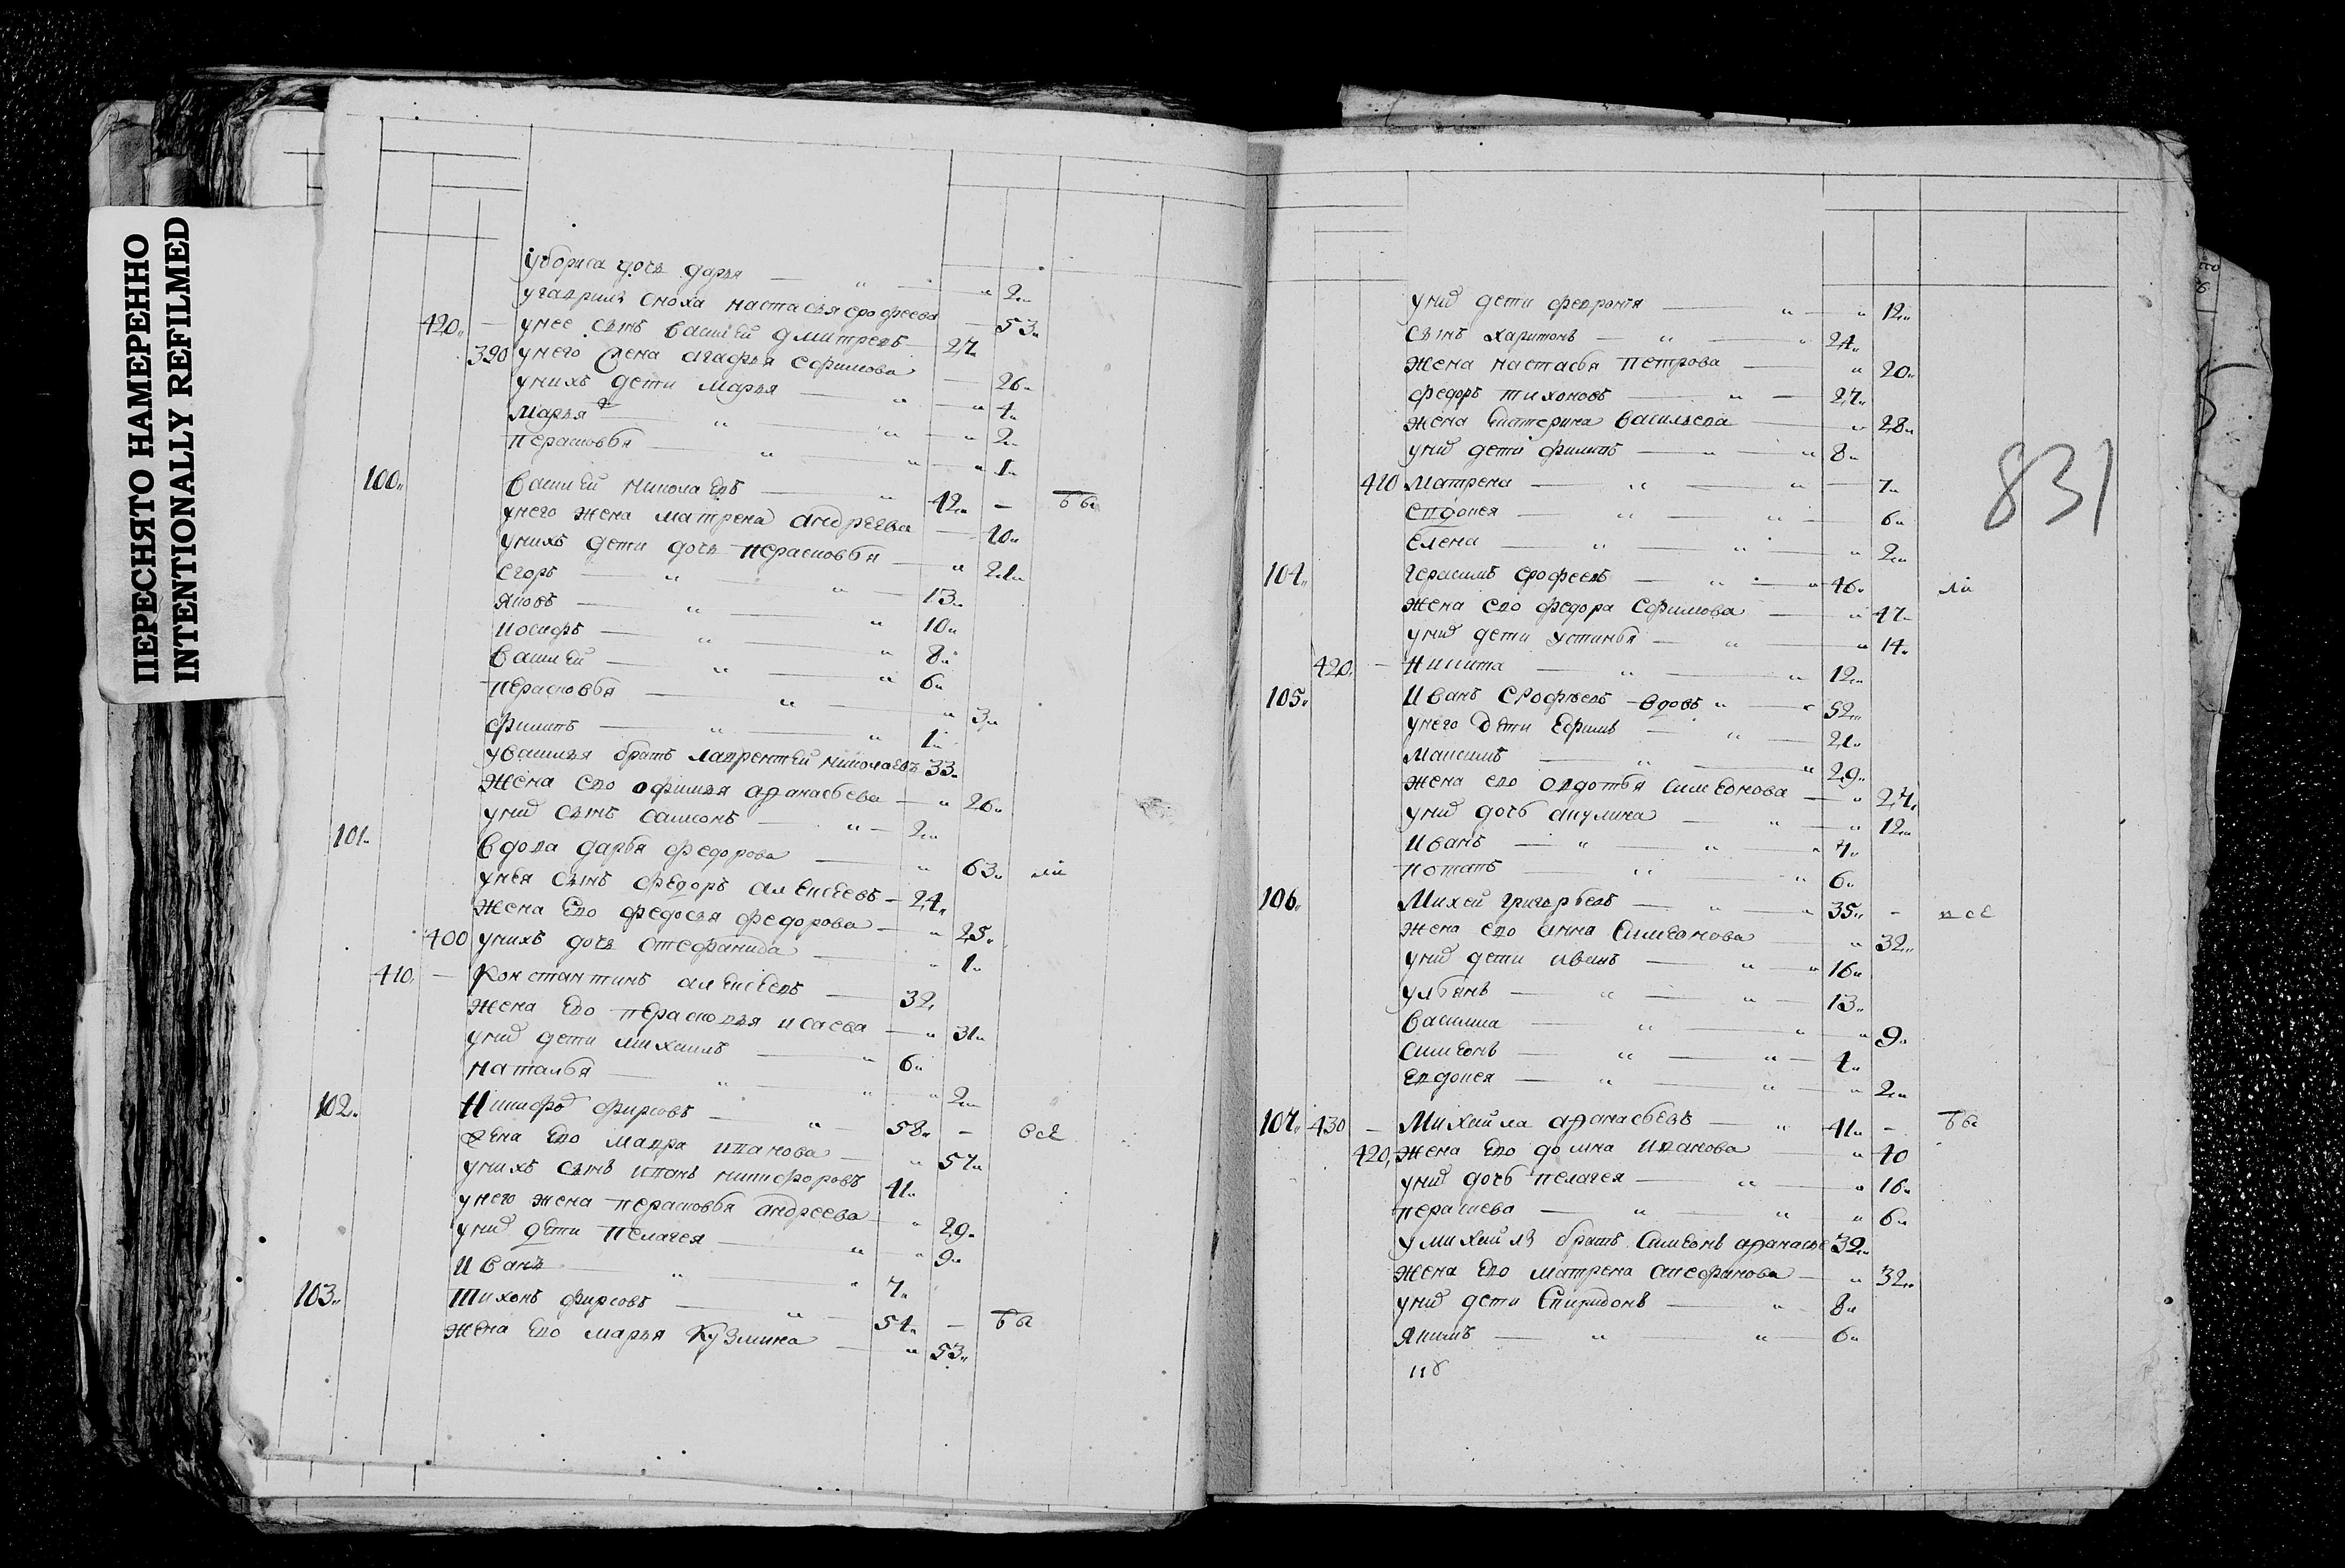 ПЕРЕСНЯТО НАМЕРЕННО
INTENTIONALLY REFILMED
у бориса дочь дарья 2
у гаврилы сноха настасья ерофеева 53
420 унее сынъ василей дмитревъ 27
390 унего жена агафья ефимова 26
унихъ дети марья 4
марья 2
перасковья 1
100 василей николаевъ 42
унего жена матрена андреева 40
унихъ дети дочь перасковья 21
егоръ 13
яковъ 10
иосифъ 8
василей 6
перасковья 3
филипъ 1
у василья братъ лаврентей николаевъ 33
жена ево офимья афанасьева 26
унихъ сынъ самсонъ 2
101 вдова дарья федорова 63
унея сынъ федоръ алексеевъ 24
жена ево федосья федорова 25
400 унихъ дочь стефанида 1
410 константинъ алексеевъ 32
жена ево перасковья исаева 31
унихъ дети михаилъ 6
наталья 2
102 Никифоръ фирсовъ 58 всё
жена ево мавра иванова 57
унихъ сынъ иванъ никифоровъ 41
унего жена перасковья андреева 29
унихъ дети пелагея 9
иванъ 7
103 тихонъ фирсовъ 54
жена ево марья кузмина 53
831
унихъ дети феврония 12
сынъ харитонъ 24
жена настасья петрова 20
федоръ тихоновъ 27
жена катерина васильева 28
унихъ дети филипъ 8
410 матрена 7
евдокея 6
елена 2
104 герасимъ ерофеевъ 46
жена ево федора ефимова 47
унихъ дети устинья 14
420 никита 12
105 иванъ ерофеевъ вдовъ 52
унего дети ефимъ 21
максимъ 29
жена ево овдотья симеонова 27
унихъ дочь акулина 12
иванъ 7
потапъ 6
106 михей григорьевъ 35 все
жена ево анна симеонова 32
унихъ дети иванъ 16
ульянъ 13
василиса 9
симеонъ 4
евдокея 2
107 430 михаила афанасьевъ 41
420 жена ево домна иванова 40
унихъ дочь пелагея 16
перасковья 6
у михайлы братъ симеонъ афанасьевъ 32
жена ево матрена 32
унихъ дети спиридонъ 8
якимъ 6